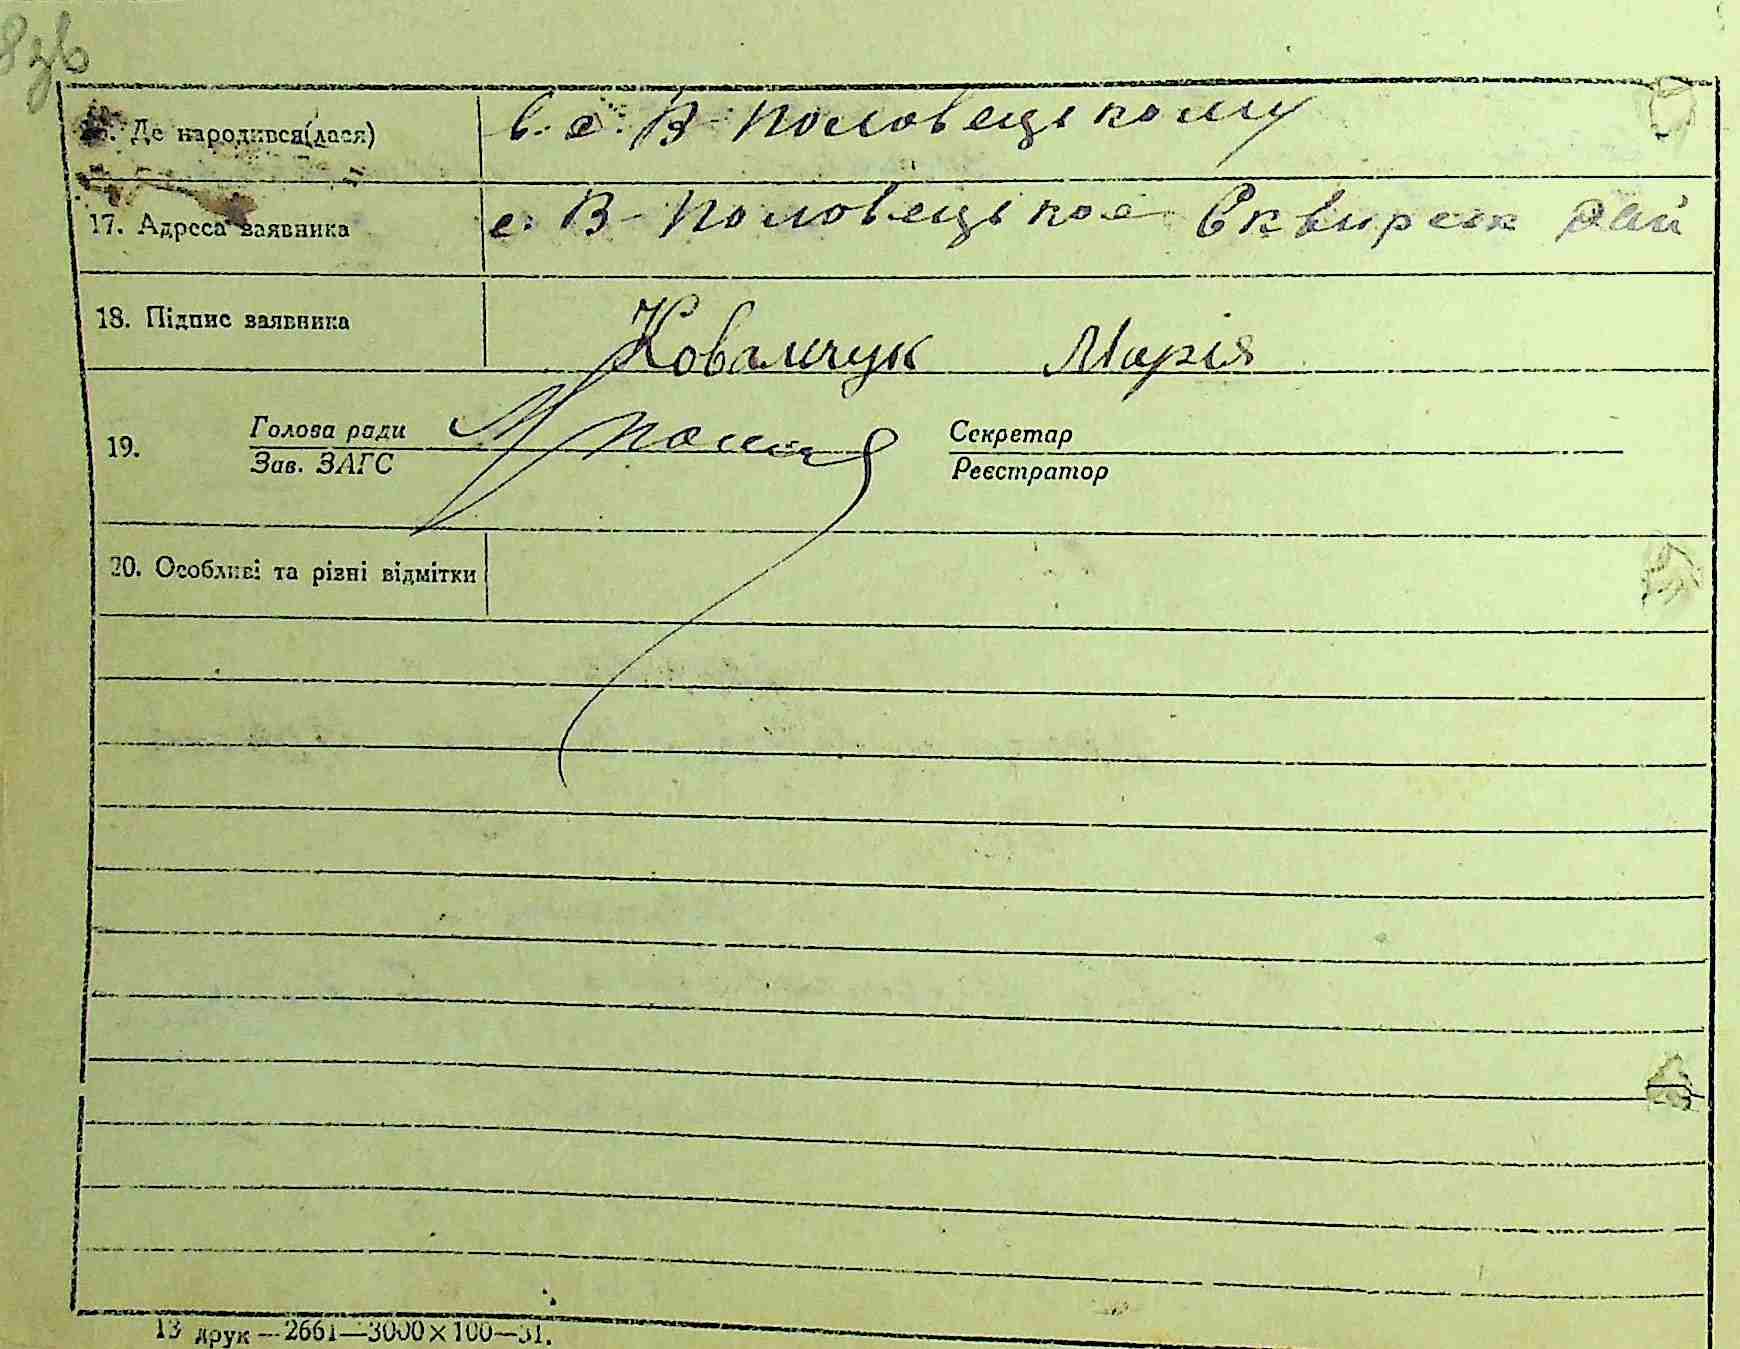 8зв
16. Де народився(лася) в. с. В-Половецькому
17. Адреса заявника с. В-Половецькое Сквирськ рай
18. Підпис заявника Ковальчук Марія
19. Голова ради Секретар
Зав. ЗАГС Реєстратор
20. Особливі та різні відмітки
13 друк—2661—3000×100—31.